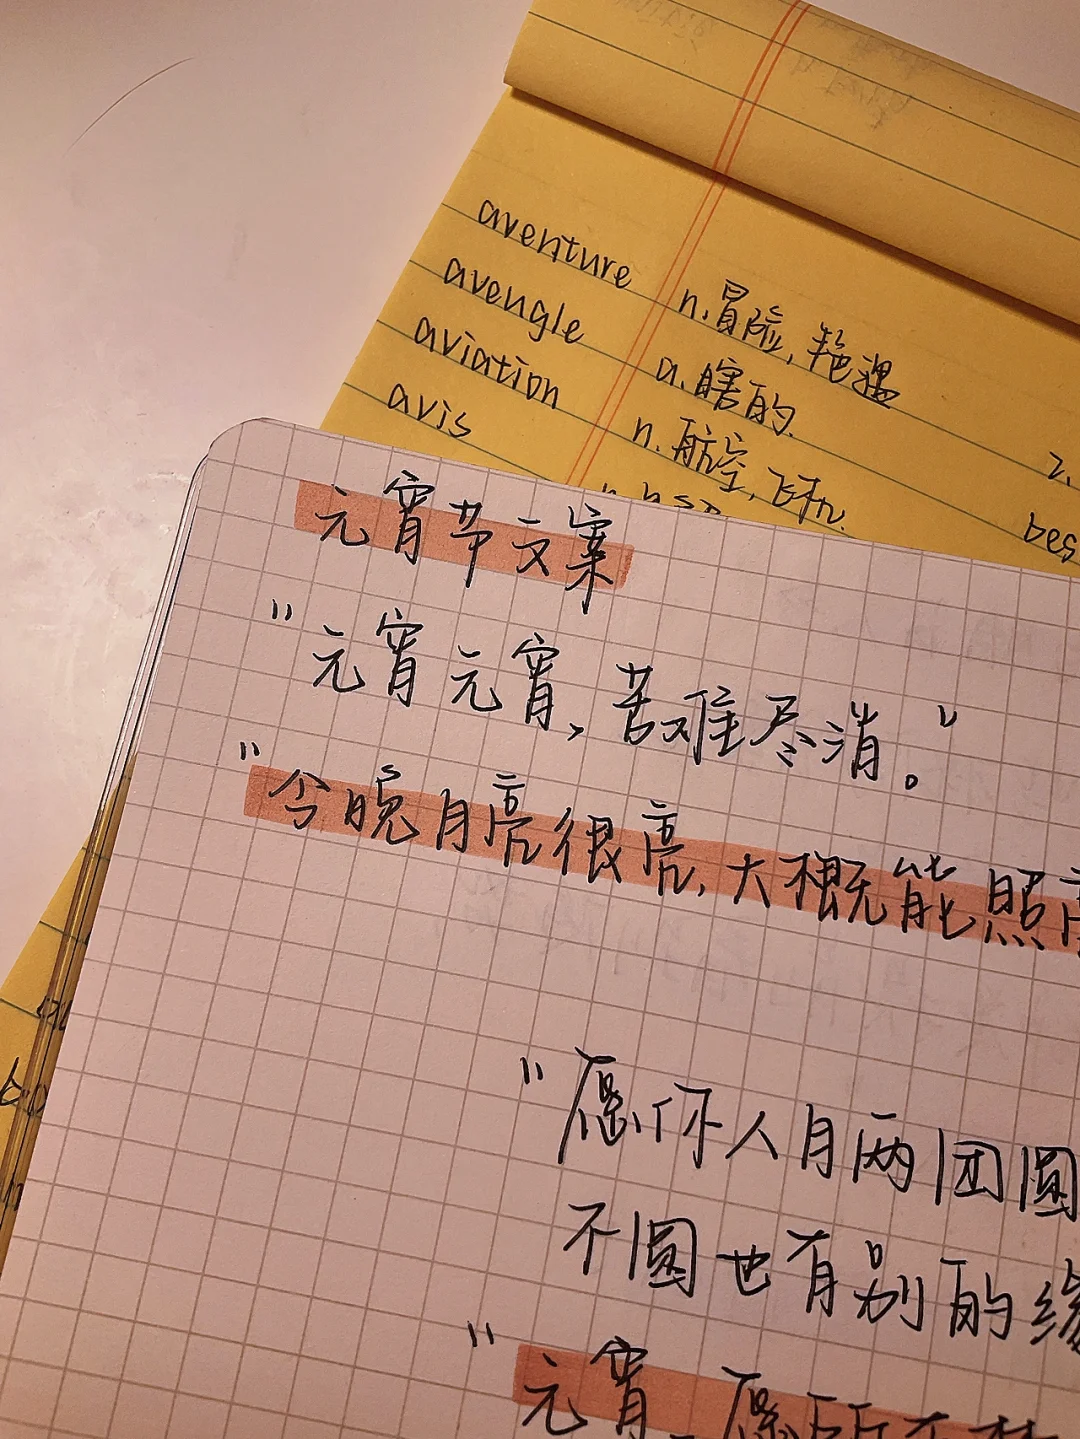 aventure n.冒险,艳遇
avengle a.瞎的.
aviation n.航空,飞机.
avis
2.
bes
元宵节文案
"元宵元宵,苦难尽消。"
"今晚月亮很亮,大概能照
"愿你人月两团圆
不圆也有别的缘
"元宵,愿所有